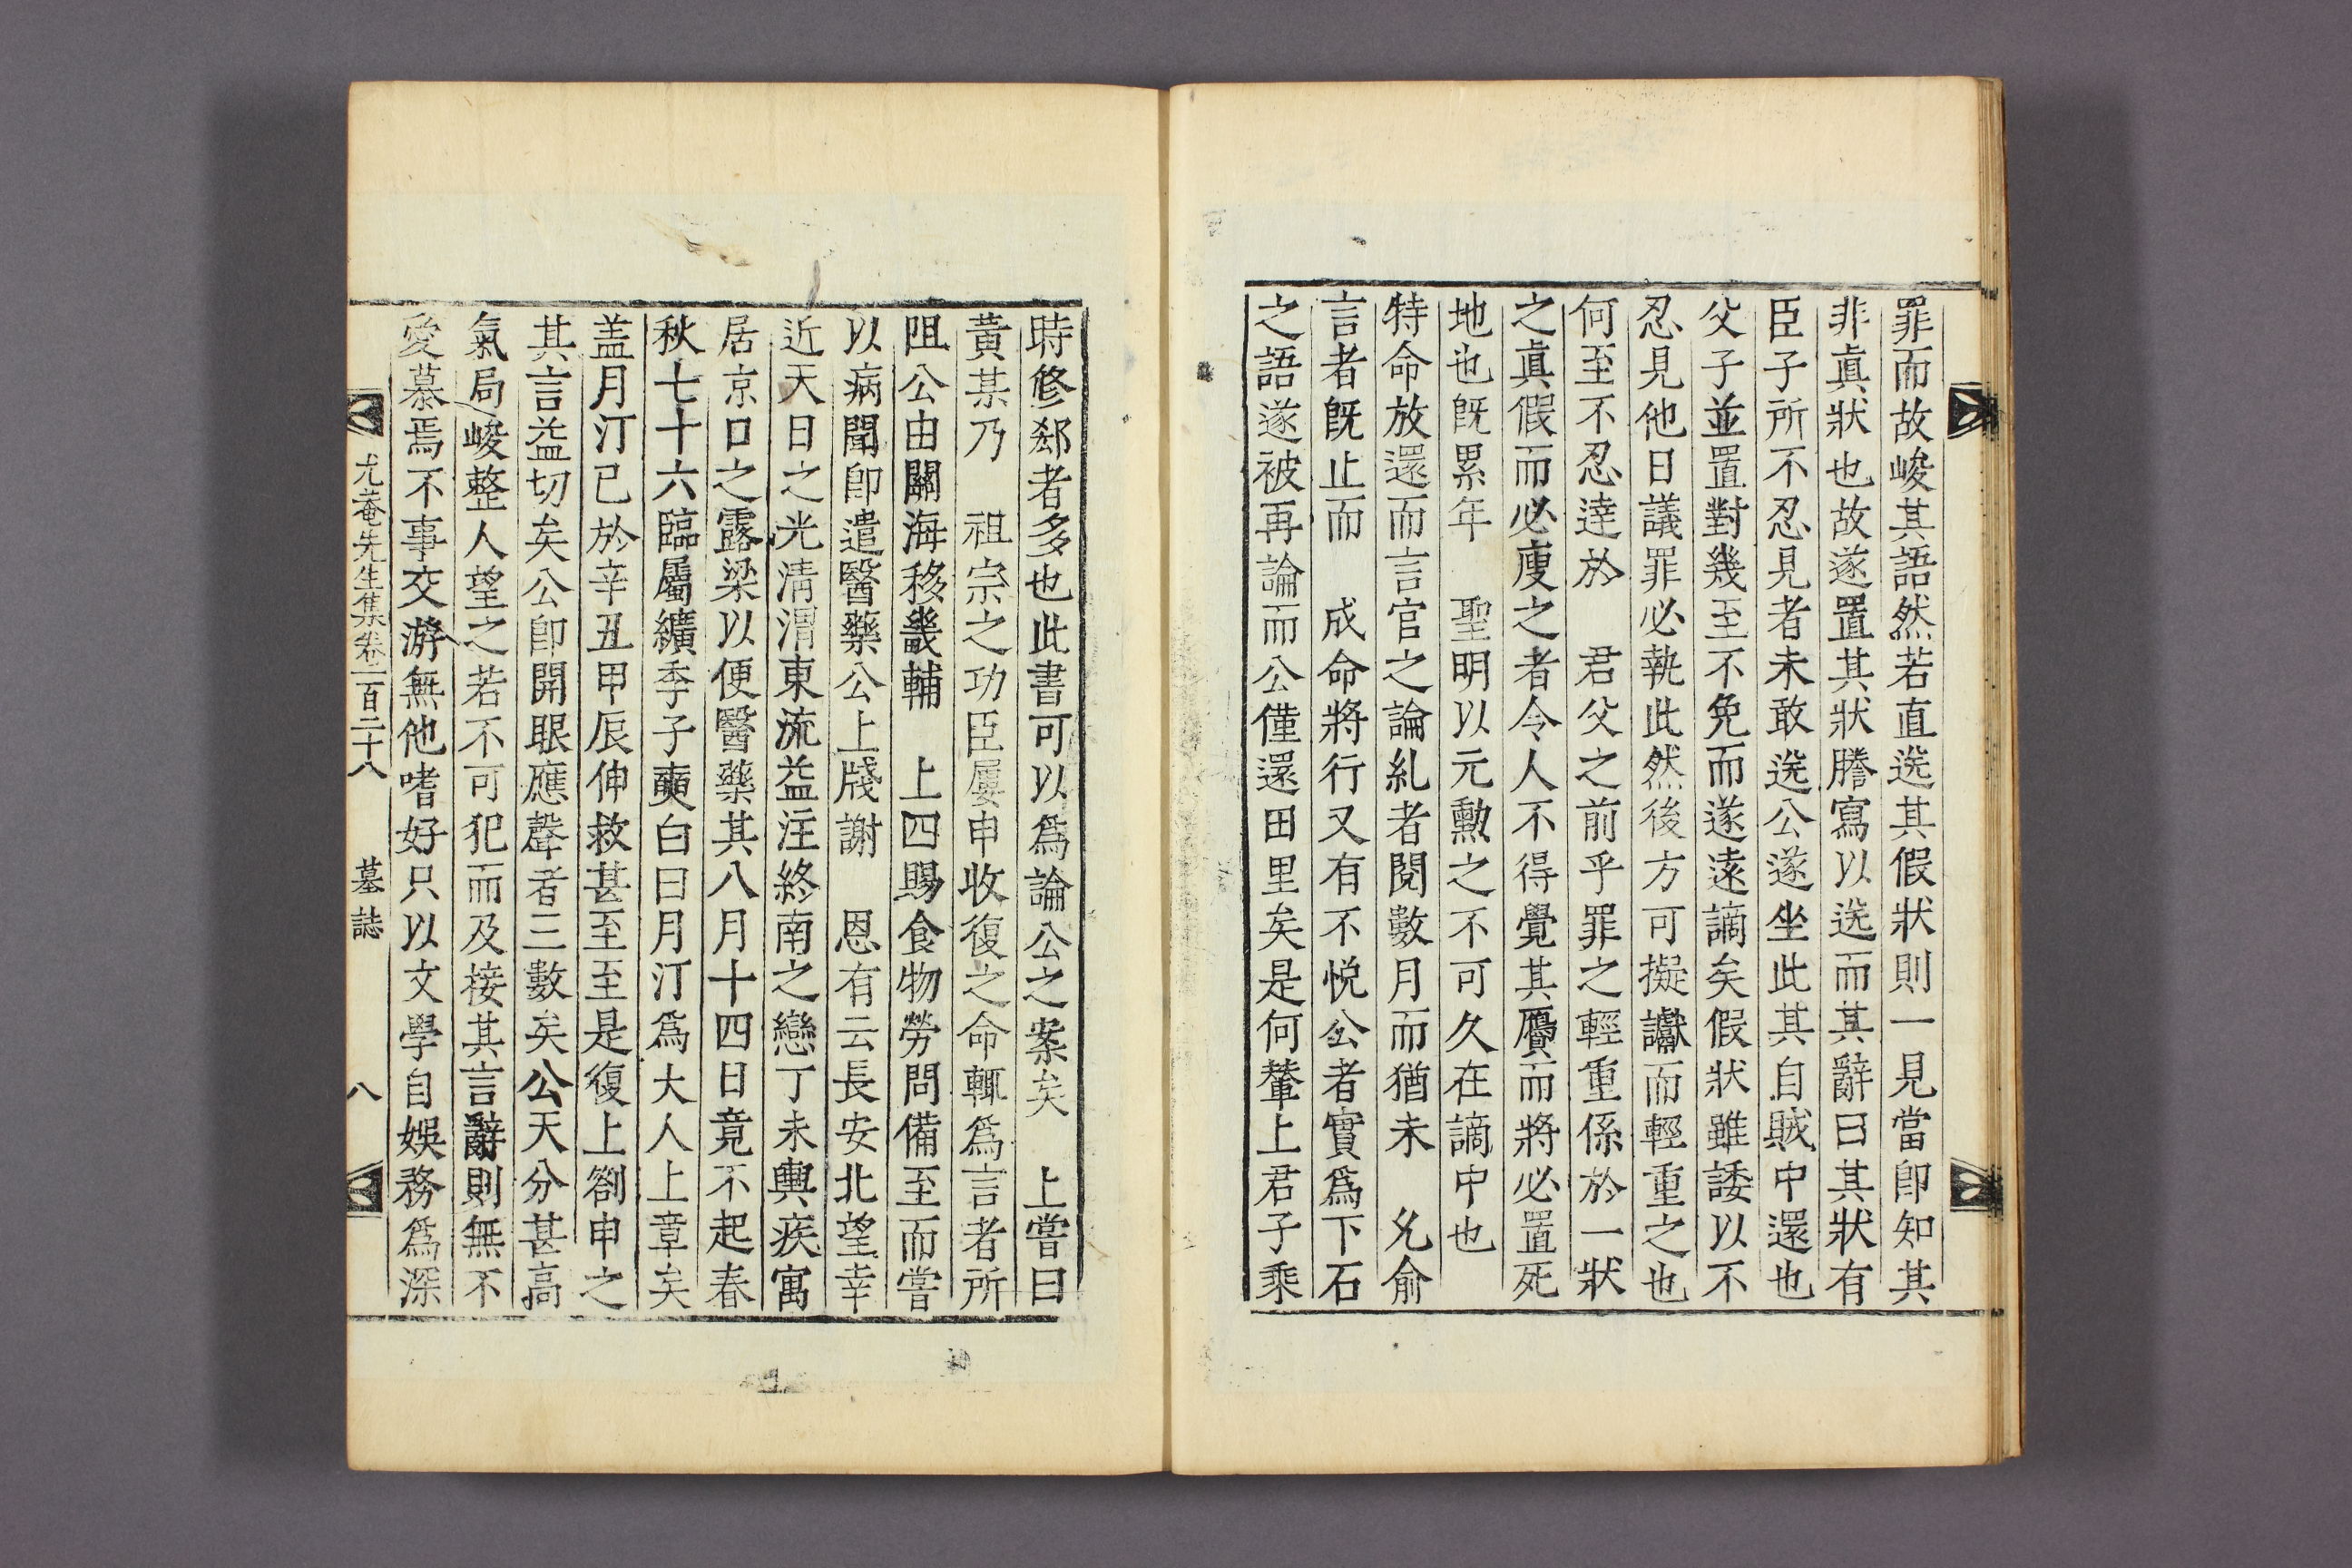 罪而故峻其語然若直送其假狀則一見當卽知其
非眞狀也故遂置其狀謄寫以送而其辭曰其狀有
臣子所不忍見者未敢送公遂坐此其自賊中還也
父子並置對幾至不免而遂遠謫矣假狀雖諉以不
忍見他日議罪必執此然後方可擬讞而輕重之也
何至不忍達於　君父之前乎罪之輕重係於一狀
之眞假而必廋之者令人不得覺其贋而將必置死
地也旣累年　聖明以元勳之不可久在謫中也
特命放還而言官之論糺者閱數月而猶未　兌兪
言者旣止而　成命將行又有不悦公者實爲下石
之語遂被再論而公僅還田里矣是何輦上君子乘
時修郄者多也此書可以爲論公之案矣　上嘗曰
黃某乃　祖宗之功臣屢申收復之命輒爲言者所
阻公由關海移畿輔　上四賜食物勞問備至而嘗
以病聞卽遣醫藥公上牋謝　恩有云長安北望幸
近天日之光淸渭東流益注終南之戀丁未輿疾寓
居京口之露梁以便醫藥其八月十四日竟不起春
秋七十六臨屬纊季子奭白曰月汀爲大人上章矣
盖月汀已於辛丑甲辰伸救甚至至是復上劄申之
其言益切矣公卽開眼應聲者三數矣公天分甚高
氣局峻整人望之若不可犯而及接其言辭則無不
愛慕焉不事交游無他嗜好只以文學自娛務爲深
尤菴先生集卷一百二十八　墓誌　八